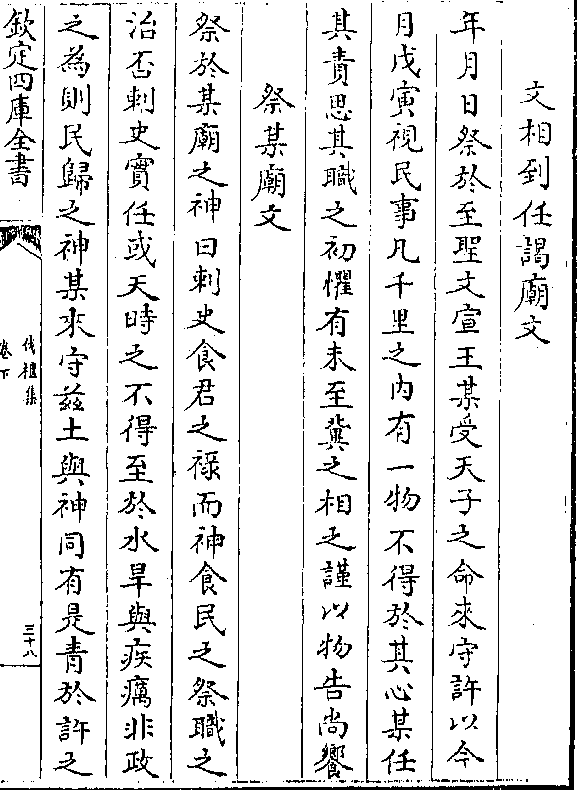 文相到任謁廟文
年月日祭於至聖文宣王某受天子之命來守許以今
月戊寅視民事凡千里之内有一物不得於其心某任
其責思其職之初懼有未至冀之相之謹以物告尚饗
祭某廟文
祭於某廟之神曰刺史食君之祿而神食民之祭職之
治否刺史實任或天時之不得至於水旱與疾癘非政
之為則民歸之神某來守兹土與神同有是青於許之
欽定四庫全書
伐檀集
卷下
三十八